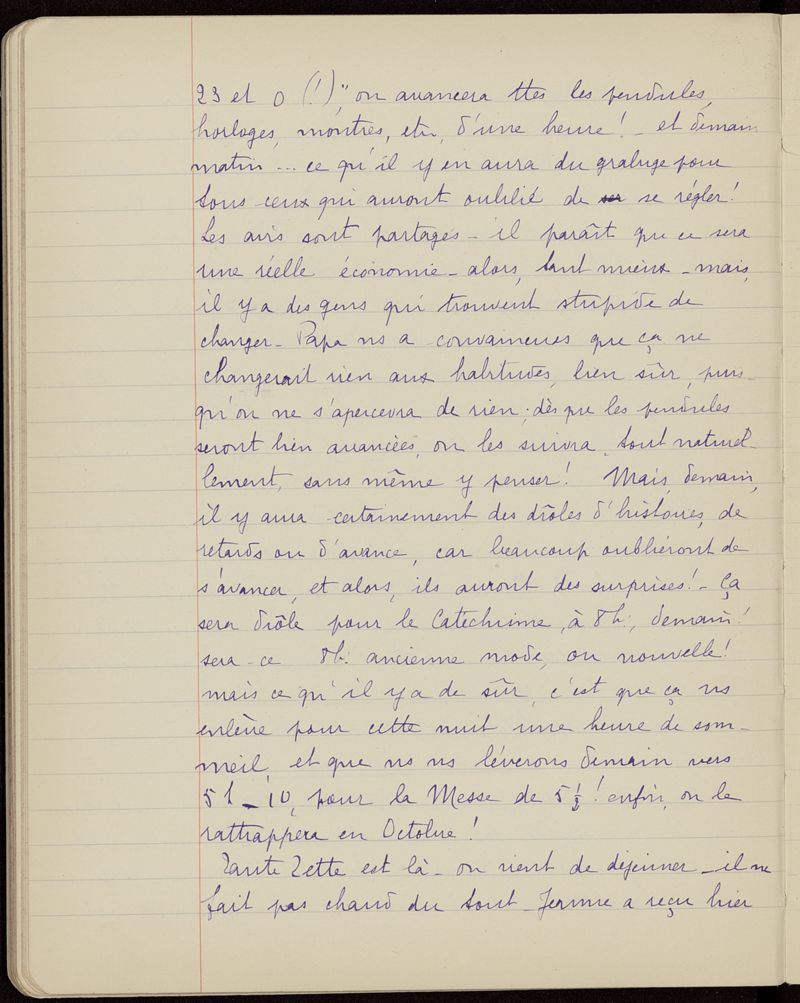 23 et 0 (!)", on avancera ttes les pendules,
horloges, montres, etc, d'une heure! - et demain
matin ... ce qu'il y en aura du grabuge pour
tous ceux qui auront oublié de se régler!
Les avis sont partagés - il paraît que ce sera
une réelle économie - alors, tant mieux - mais,
il y a des gens qui trouvent stupide de
changer - Papa ns a convaincues que ça ne
changerait rien aux habitudes, bien sûr, puis-
qu'on ne s'apercevra de rien ; dès que les pendules
seront bien avancées, on les suivra, tout naturel-
lement, sans même y penser! Mais, demain,
il y aura certainement des drôles d'histoires, de
retards ou d'avance, car beaucoup oublieront de
s'avancer, et alors, ils auront des surprises! - Ça
sera drôle pour le Catéchisme, à 8h:, demain!
sera-ce 8h: ancienne mode, ou nouvelle!
mais ce qu'il y a de sûr, c'est que ça ns
enlève pour cette nuit une heure de som-
meil, et que ns ns lèverons demain vers
5h - 10, pour la Messe de 5 ½! enfin, on le
rattrappera en Octobre!
Tante Zette est là - on vient de déjeuner - il ne
fait pas chaud du tout - a reçu hier